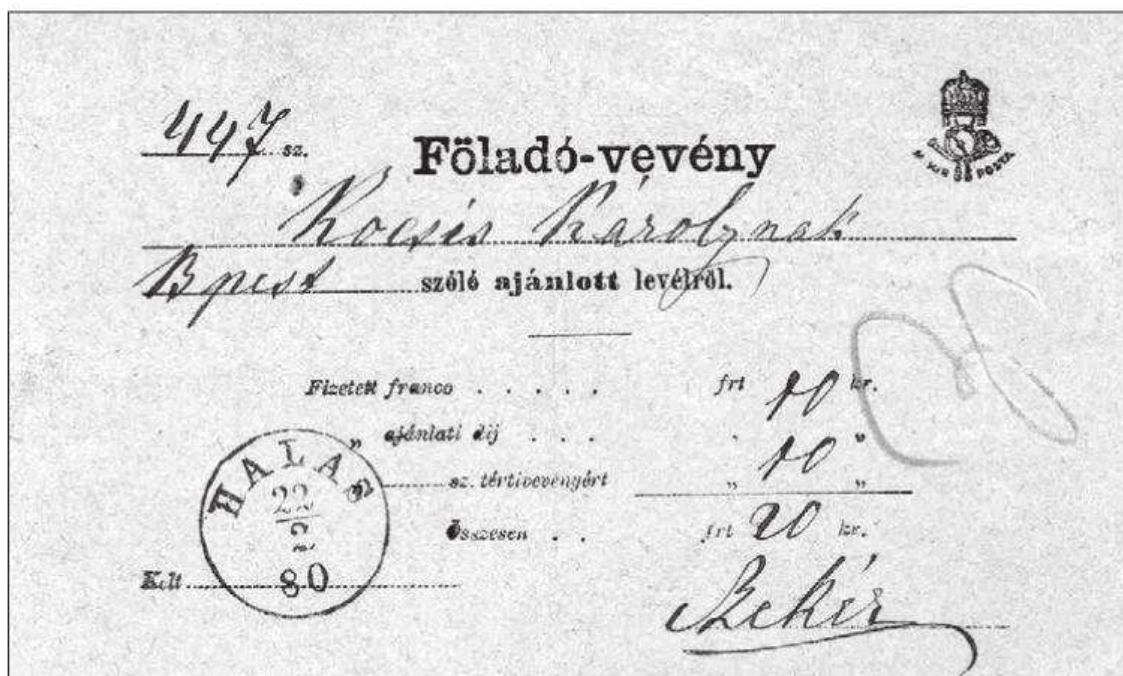 447 sz.
Föladó-vevény
M. KIR. POSTA
Kocsis Károlynak
Bpest szóló ajánlott levélről.
Fizetett franco . . . . . frt 10 kr.
„ ajánlati díj . . . „ 10 „
sz. tértivevényért „ „
Összesen . . frt 20 kr.
HALAS
22
2
80
Kelt